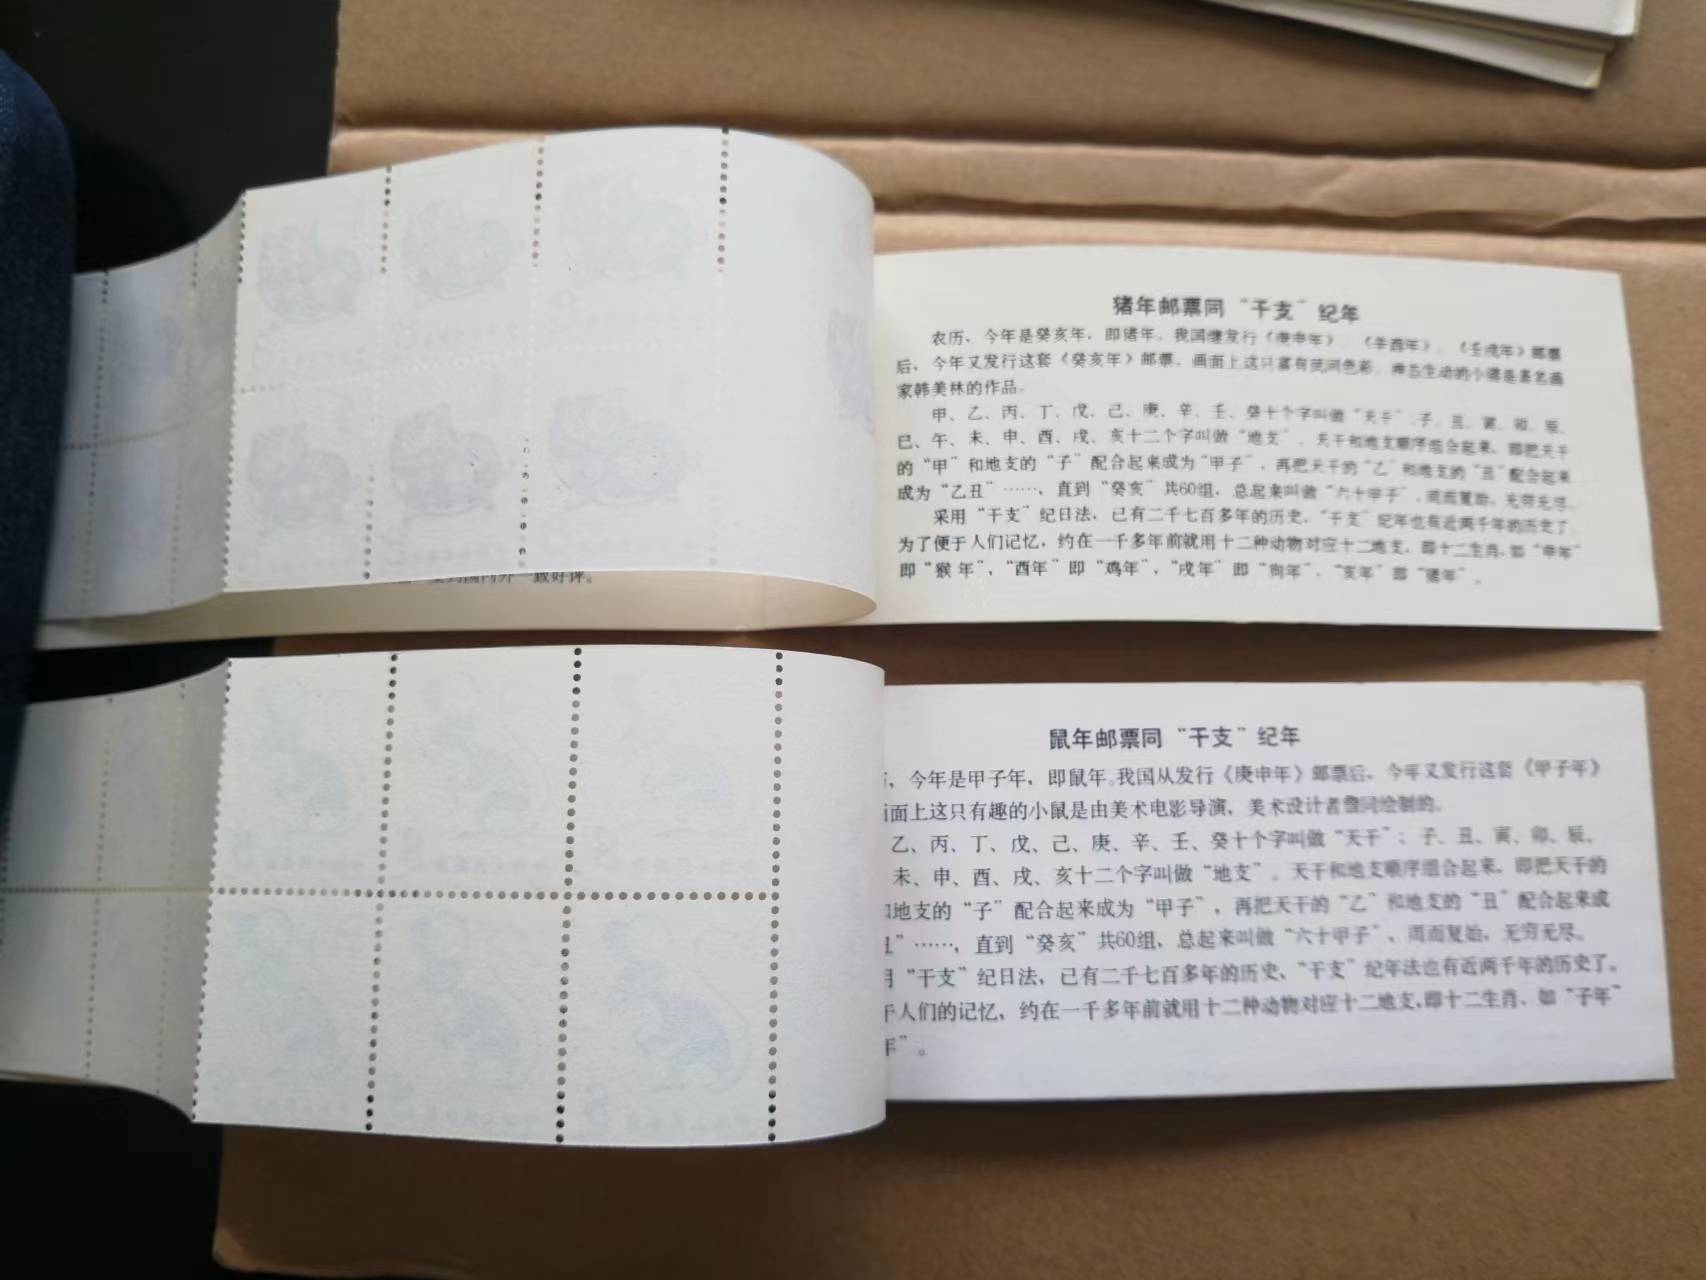 猪年邮票同“干支”纪年
农历，今年是癸亥年，即猪年。我国继发行《庚申年》、《辛酉年》、《壬戌年》邮票
后，今年又发行这套《癸亥年》邮票。画面上这只富有民间色彩，神态生动的小猪是著名画
家韩美林的作品。
甲、乙、丙、丁、戊、己、庚、辛、壬、癸十个字叫做“天干”；子、丑、寅、卯、辰、
巳、午、未、申、酉、戌、亥十二个字叫做“地支”。天干和地支顺序组合起来，即把天干
的“甲”和地支的“子”配合起来成为“甲子”，再把天干的“乙”和地支的“丑”配合起来
成为“乙丑”……，直到“癸亥”共60组，总起来叫做“六十甲子”，周而复始，无穷无尽。
采用“干支”纪日法，已有二千七百多年的历史，“干支”纪年也有近两千年的历史了。
为了便于人们记忆，约在一千多年前就用十二种动物对应十二地支，即十二生肖，如“申年”
即“猴年”，“酉年”即“鸡年”，“戌年”即“狗年”，“亥年”即“猪年”。
国内外一致好评。
鼠年邮票同“干支”纪年
，今年是甲子年，即鼠年。我国从发行《庚申年》邮票后，今年又发行这套《甲子年》
面上这只有趣的小鼠是由美术电影导演，美术设计者詹同绘制的。
乙、丙、丁、戊、己、庚、辛、壬、癸十个字叫做“天干”；子、丑、寅、卯、辰、
未、申、酉、戌、亥十二个字叫做“地支”。天干和地支顺序组合起来，即把天干的
地支的“子”配合起来成为“甲子”，再把天干的“乙”和地支的“丑”配合起来成
”……，直到“癸亥”共60组，总起来叫做“六十甲子”，周而复始，无穷无尽。
用“干支”纪日法，已有二千七百多年的历史，“干支”纪年法也有近两千年的历史了。
于人们的记忆，约在一千多年前就用十二种动物对应十二地支，即十二生肖，如“子年”
年”。